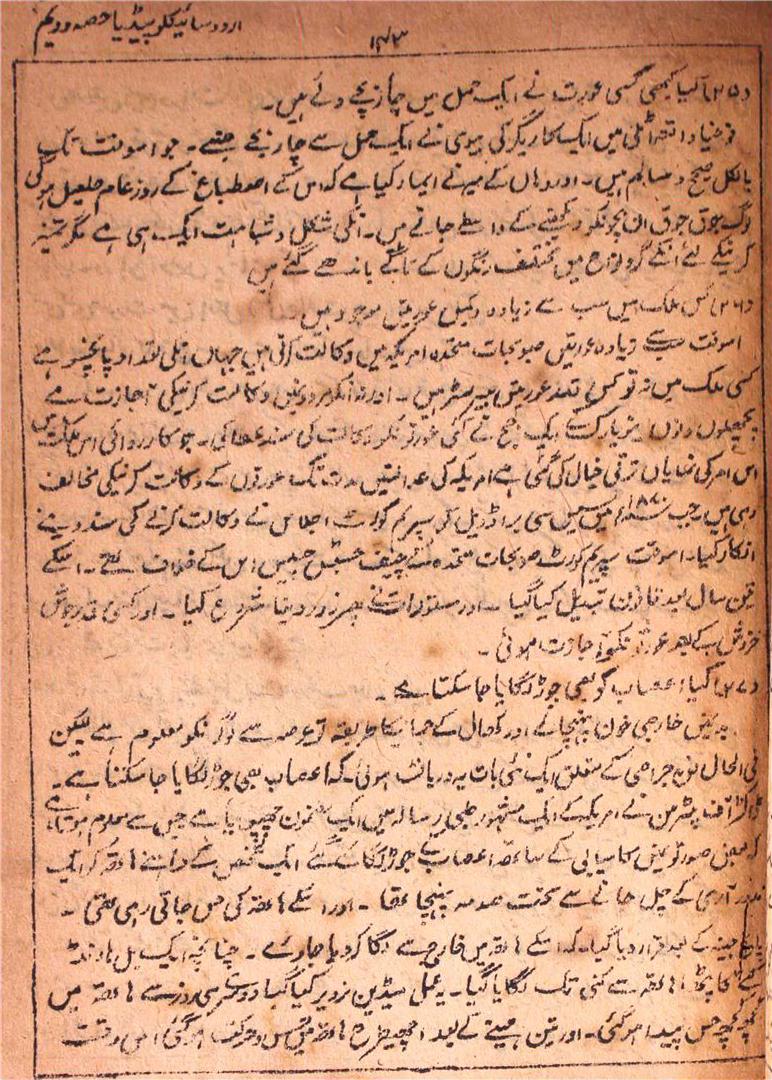 اردو سائیکلو پیڈیا حصہ دویم
۱۴۳
(۲۵) آیا کبھی کسی عورت نے ایک حمل میں چار بچے دئے ہیں۔
واقعہ اٹلی میں ایک کاریگر کی بیوی نے ایک حمل سے چار بچے جنے۔ جو اسوقت تک
بالکل صحیح و سالم ہیں۔ اور وہاں کے میر نے ایما کیا ہے کہ اس کے اصطباغ کے روز عام تعطیل ہو گی
لوگ جوق جوق ان بچونکو دیکھنے کے واسطے جاتے ہیں۔ انکی شکل و شباہت ایک ہی ہے مگر تمیز
کرنیکے لئے انکے گرد مختلف رنگوں کے تاگے باندھے گئے ہیں
(۲۶) کس ملک میں سب سے زیادہ وکیل عورتیں موجود ہیں۔
اسوقت سب سے زیادہ عورتیں صوبجات متحدہ امریکہ میں وکالت کرتی ہیں جہاں انکی تعداد پانچسو ہے
کسی ملک میں نہ تو اس قدر عورتیں بیرسٹر ہیں۔ اور نہ انکو وکالت کرنیکی اجازت ہے
پچھلے دنوں نیویارک کے ایک جج نے کئی عورتونکو وکالت کی سند عطا کی۔ جو کارروائی اس ملک میں
اس امر کی نمایاں ترقی خیال کی گئی ہے امریکہ کی عدالتیں مدت تک عورتوں کے وکالت کرنیکی مخالف
رہی ہیں جب ۱۸۷۰ء میں مسیس سی براڈویل کو سپریم کورٹ اجلاس نے وکالت کرنے کی سند دینے
انکار کیا۔ اسوقت سپریم کورٹ صوبجات متحدہ کے چیف جسٹس چیس اس کے خلاف تھے۔ اسکے
تین سال بعد قانون تبدیل کیا گیا۔ اور مستورات نے پھر زور دینا شروع کیا۔ اور کسی قدر جوش
خروش کے بعد عورتونکو اجازت ہوئی۔
(۲۷) آیا اعصاب کو بھی جوڑ لگایا جا سکتا ہے۔
بدن میں خارجی خون پہنچانے اور کھال کے جمانیکا طریقہ تو عرصہ سے لوگونکو معلوم ہے لیکن
فی الحال فن جراحی کے متعلق ایک نئی بات یہ دریافت ہوئی۔ کہ اعصاب بھی جوڑ لگایا جا سکتا ہے۔
ڈاکٹر پیٹرسن نے امریکہ کے ایک مشہور طبی رسالہ میں ایک مضمون چھپوایا ہے جس سے معلوم ہوتا ہے
کہ بعض صورتوں میں کامیابی کے ساتھ اعصاب کے جوڑ لگائے گئے ایک شخص کے داہنے ہاتھ کو ایک
آری کے چل جانے سے سخت صدمہ پہنچا تھا۔ اور اسکے ہاتھ کی حس جاتی رہی تھی۔
پانچ مہینہ کے بعد قرار دیا گیا۔ کہ اسکے ہاتھ میں خارج سے لگا کر دیا جاوے۔ چنانچہ ایک بل ہاونڈ
کا پٹھا ہاتھ سے کہنی تک لگایا گیا۔ یہ عمل میڈین نرو پر کیا گیا دوسرے ہی روز سے ہاتھ میں
کچھ کچھ حس پیدا ہو گئی۔ اور تین مہینے کے بعد اچھی طرح ہاتھ میں حس و حرکت ہو گئی اس وقت